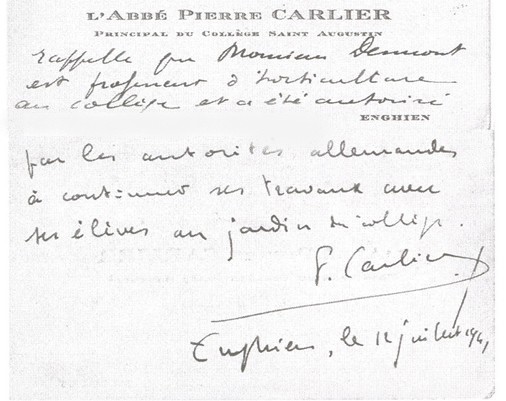 L'ABBÉ PIERRE CARLIER
PRINCIPAL DU COLLÈGE SAINT AUGUSTIN
rappelle que Monsieur Desmont
est professeur d'horticulture
au collège et a été autorisé
ENGHIEN
par les autorités allemandes
à continuer ses travaux avec
ses élèves au jardin du collège.
P. Carlier
Enghien, le 12 juillet 1941